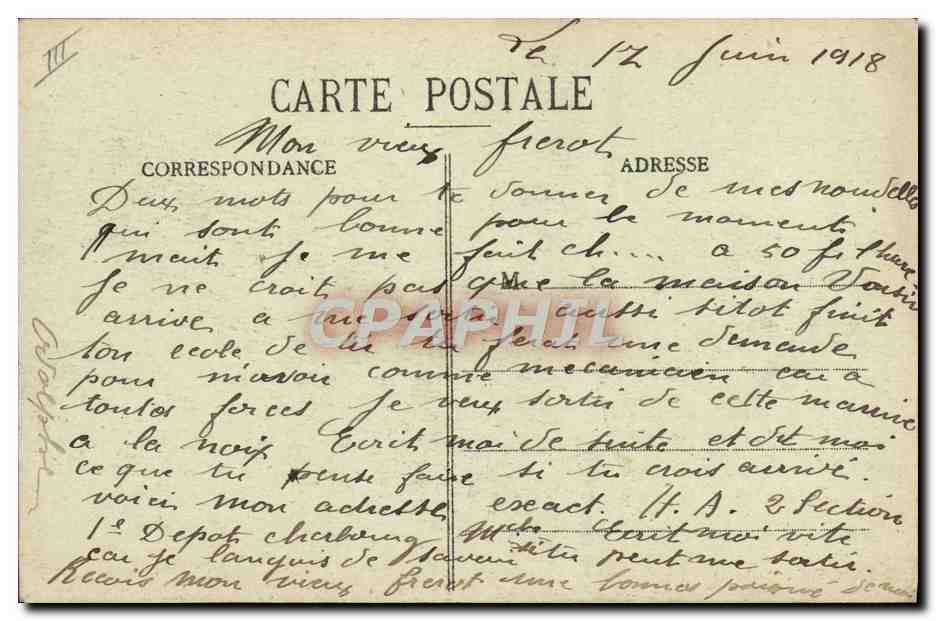 III
Le 12 Juin 1918
CARTE POSTALE
Mon vieux frerot
CORRESPONDANCE
ADRESSE
Deux mots pour te donner de mes nouvelles
qui sont bonne pour le moment
mait je me fait ch.... a 50 f l'heure
M
je ne croit pas que la maison Voisin
arrive a me sortir aussi sitot finit
CPAPHIL
ton ecole de tu ferat une demande
pour m'avoir comme mecanicien car a
toutes forces je veux sortir de cette marine
a la noix Ecrit moi de suite et dit moi
ce que tu pense faire si tu crois arrivé.
voici mon adresse exact. H. A. 2 Section
1e Depot cherbourg Mche Ecrit moi vite
car je languis de savoir si tu peut me sortir.
Recois mon vieux frerot une bonnes poigné de main
Adolphe